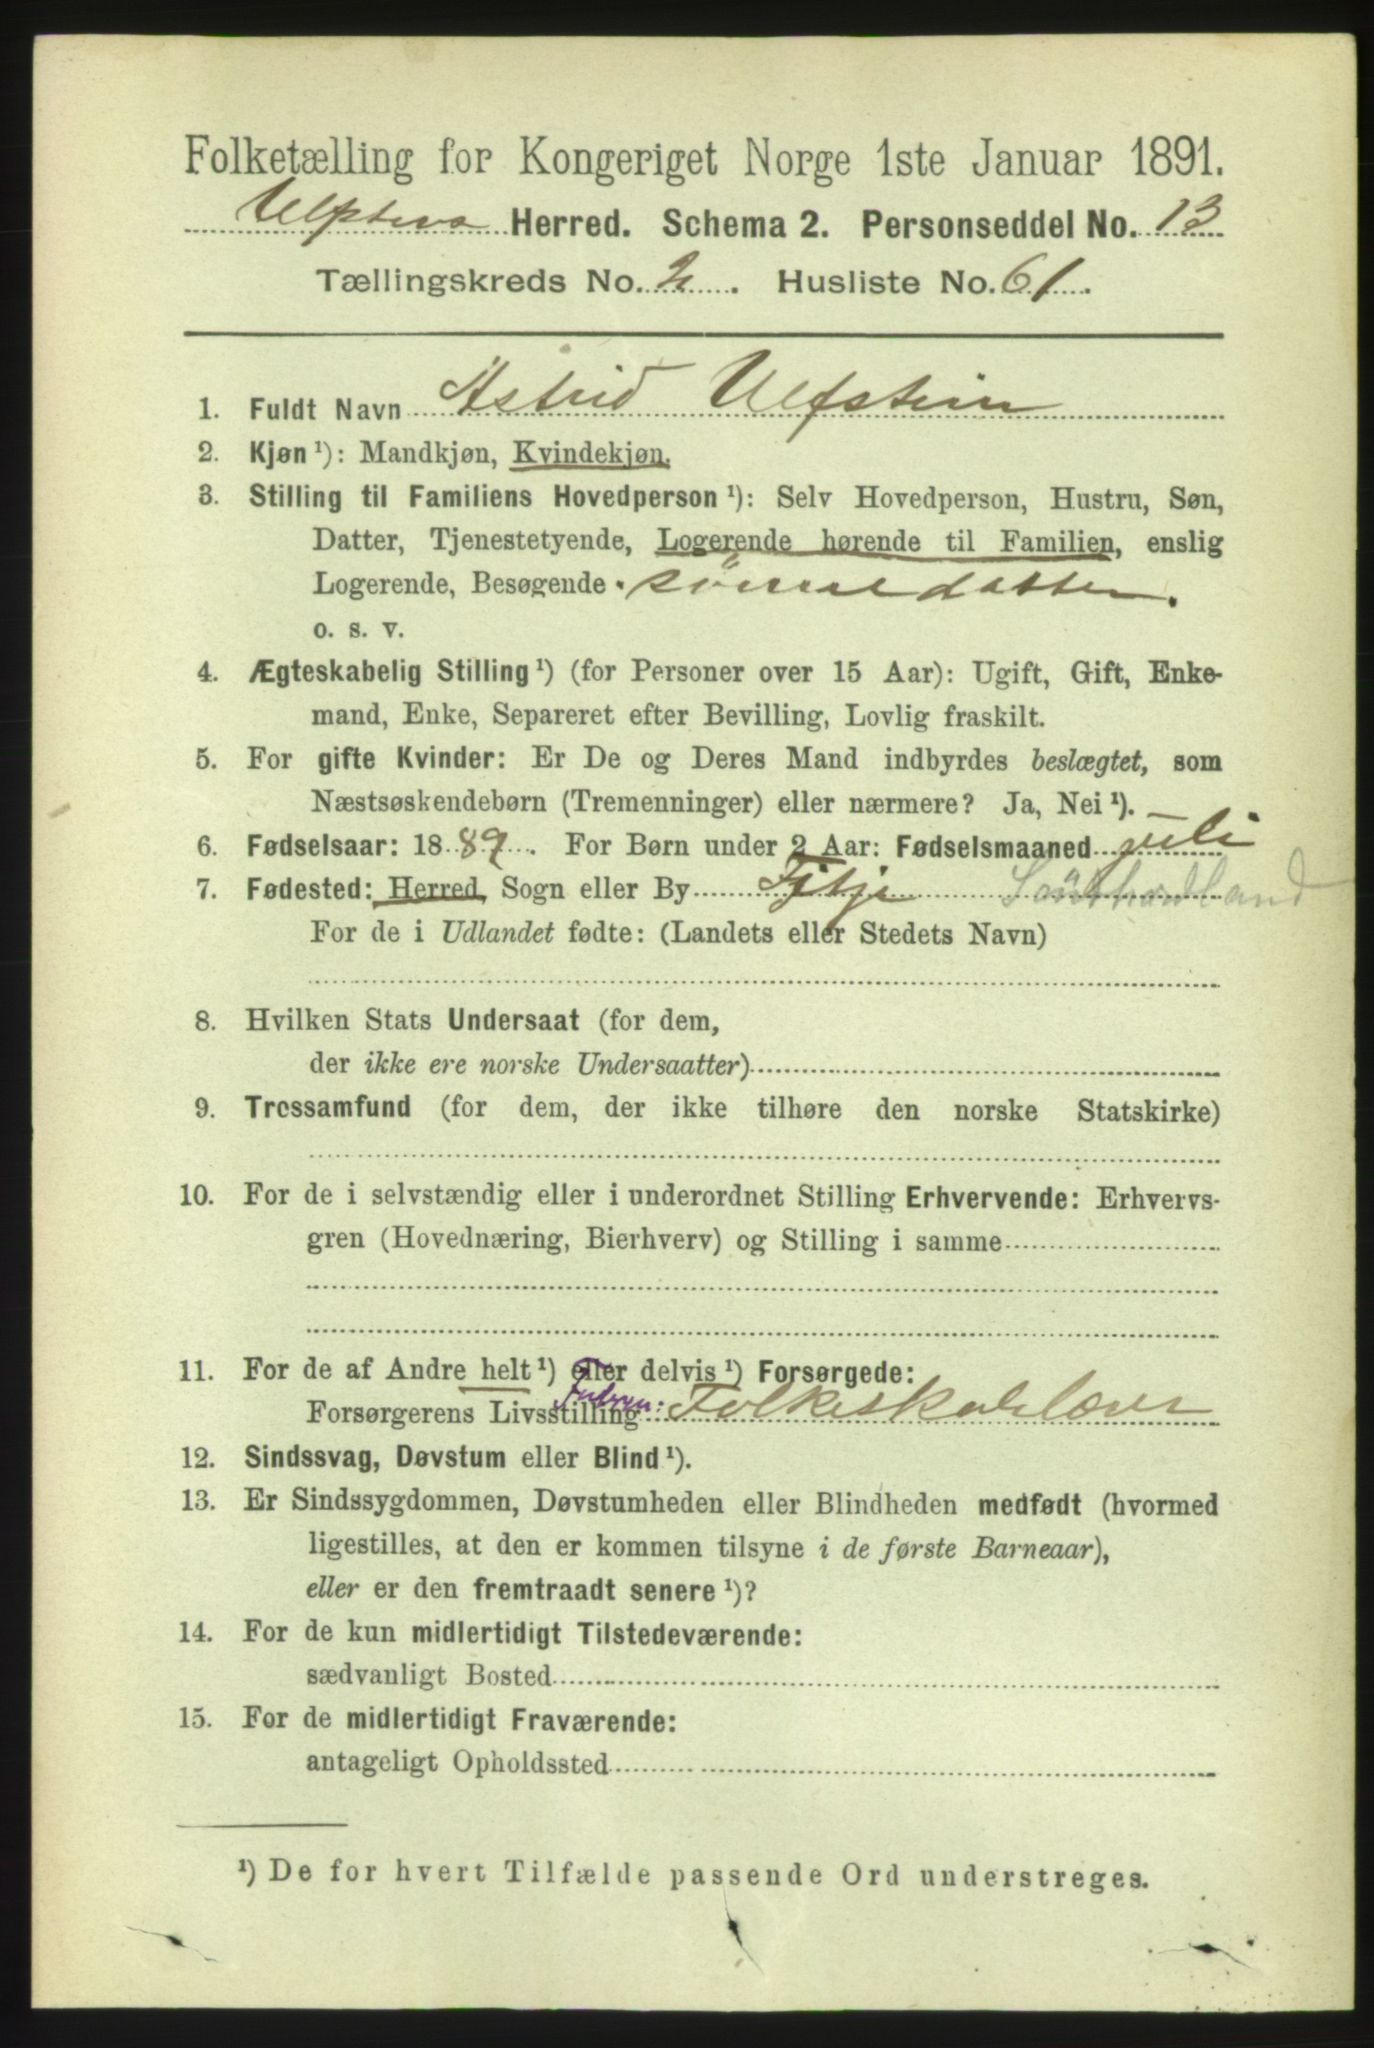 Folketælling for Kongeriget Norge 1ste Januar 1891.
Ulfsten Herred. Schema 2. Personseddel No. 13
Tællingskreds No. 2. Husliste No. 61.
1. Fuldt Navn Astrid Ulfstein
2. Kjøn ¹): Mandkjøn, Kvindekjøn.
3. Stilling til Familiens Hovedperson ¹): Selv Hovedperson, Hustru, Søn,
Datter, Tjenestetyende, Logerende hørende til Familien, enslig
Logerende, Besøgende . sönnedatter.
o. s. v.
4. Ægteskabelig Stilling ¹) (for Personer over 15 Aar): Ugift, Gift, Enke-
mand, Enke, Separeret efter Bevilling, Lovlig fraskilt.
5. For gifte Kvinder: Er De og Deres Mand indbyrdes beslægtet, som
Næstsøskendebørn (Tremenninger) eller nærmere? Ja, Nei ¹).
6. Fødselsaar: 1889. For Børn under 2 Aar: Fødselsmaaned juli
7. Fødested: Herred, Sogn eller By Fitje Söndhordland
For de i Udlandet fødte: (Landets eller Stedets Navn)
8. Hvilken Stats Undersaat (for dem,
der ikke ere norske Undersaatter)
9. Trossamfund (for dem, der ikke tilhøre den norske Statskirke)
10. For de i selvstændig eller i underordnet Stilling Erhvervende: Erhvervs-
gren (Hovednæring, Bierhverv) og Stilling i samme
11. For de af Andre helt ¹) eller delvis ¹) Forsørgede:
Forsørgerens Livsstilling Folkeskolelærer
12. Sindssvag, Døvstum eller Blind ¹).
13. Er Sindssygdommen, Døvstumheden eller Blindheden medfødt (hvormed
ligestilles, at den er kommen tilsyne i de første Barneaar),
eller er den fremtraadt senere ¹)?
14. For de kun midlertidigt Tilstedeværende:
sædvanligt Bosted
15. For de midlertidigt Fraværende:
antageligt Opholdssted
¹) De for hvert Tilfælde passende Ord understreges.